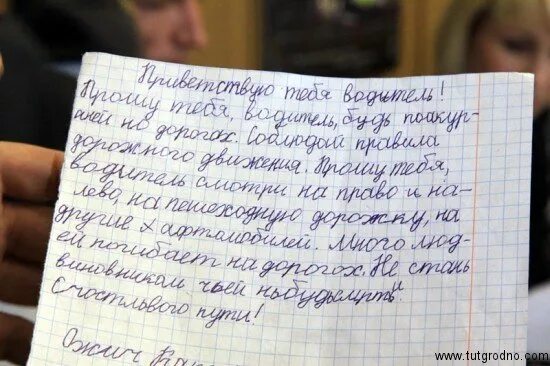 Приветствую тебя водитель!
Прошу тебя, водитель, будь поакур-
атней на дорогах. Соблюдай правила
дорожного движения. Прошу тебя,
водитель смотри на право и на-
лево, на пешеходную дорожку, на
другие х афтомобилей. Много люд-
ей погибает на дорогох. Не стань
виновником чьей нибудь смерти
Счостльвого пути!
Ожич
www.tutgrodno.com